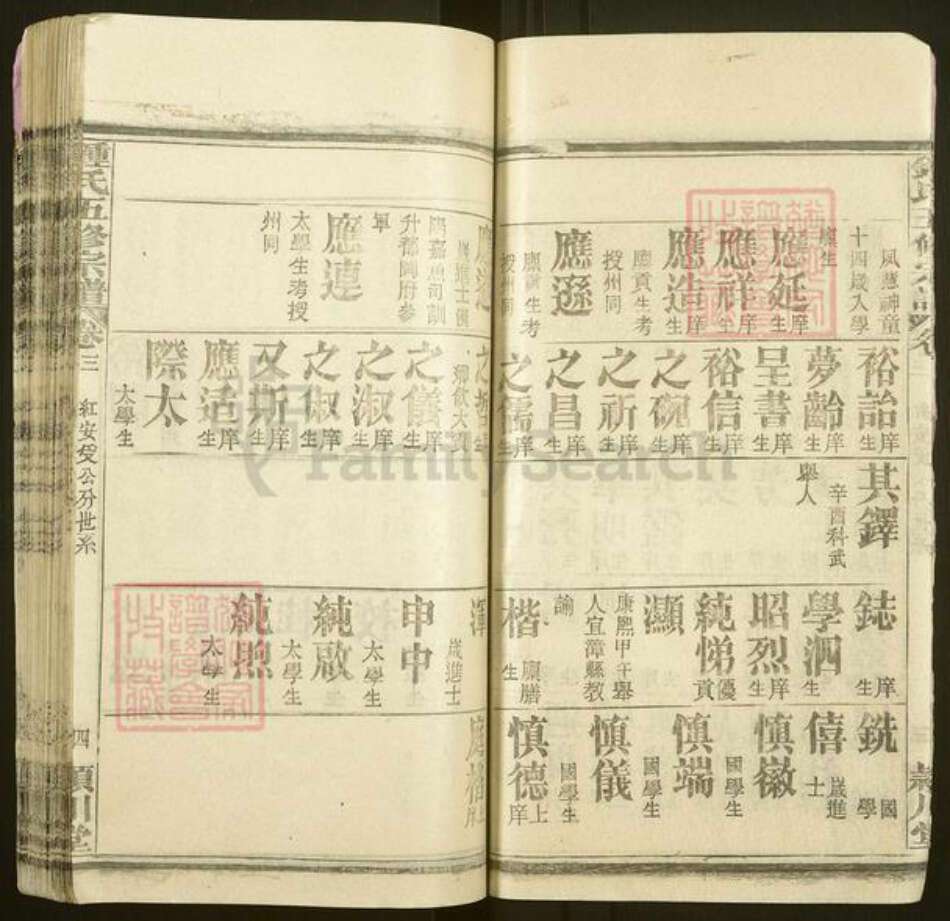 夙慧神童
十四歲入學
應延 庠生
應祥 庠生
應造 庠生
廩貢生考
授州同
應遜
廩貢生考
授州同
升都閫府參
軍
應連
太學生考授
州同
裕詒 庠生
夢齡 庠生
呈書 庠生
裕信 庠生
之硯 庠生
之祈 庠生
之昌 庠生
之儒 庠生
鄉飲大賓
之儀 庠生
之淑 庠生
之俶 庠生
又斯 庠生
應适 庠生
際太
太學生
其鐸
辛酉科武
舉人
鋕 庠生
學泗 庠生
昭烈 庠生
純悌 優貢
灝
康熙甲午舉
人宜漳縣教
諭
楷 廩膳生
歲進士
申中
太學生
純啟
太學生
純煦
太學生
銑 國學
僖 歲進士
慎徽
國學生
慎端
國學生
慎儀
國學生
慎德 上庠
鍾氏五修宗譜 卷三
紅安受公分世系
四
潁川堂
FamilySearch